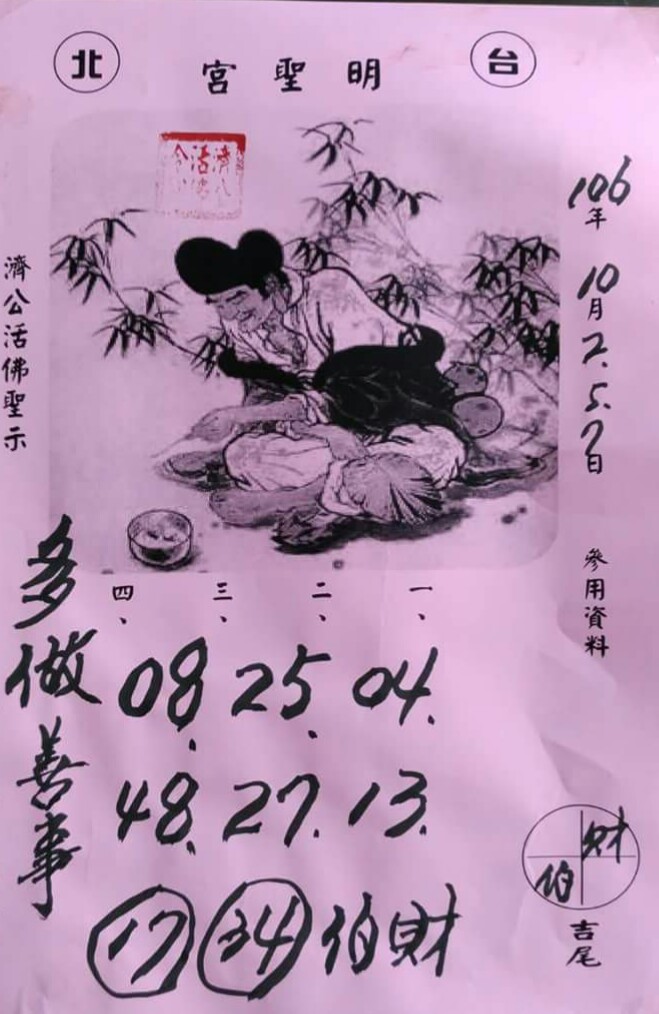 台北
明聖宮
濟公活佛
106年10月2.5.7日
參用資料
濟公活佛聖示
一、二、三、四、
04. 25. 08.
13. 27. 48.
財伯 34 17
多做善事
財
伯
吉尾